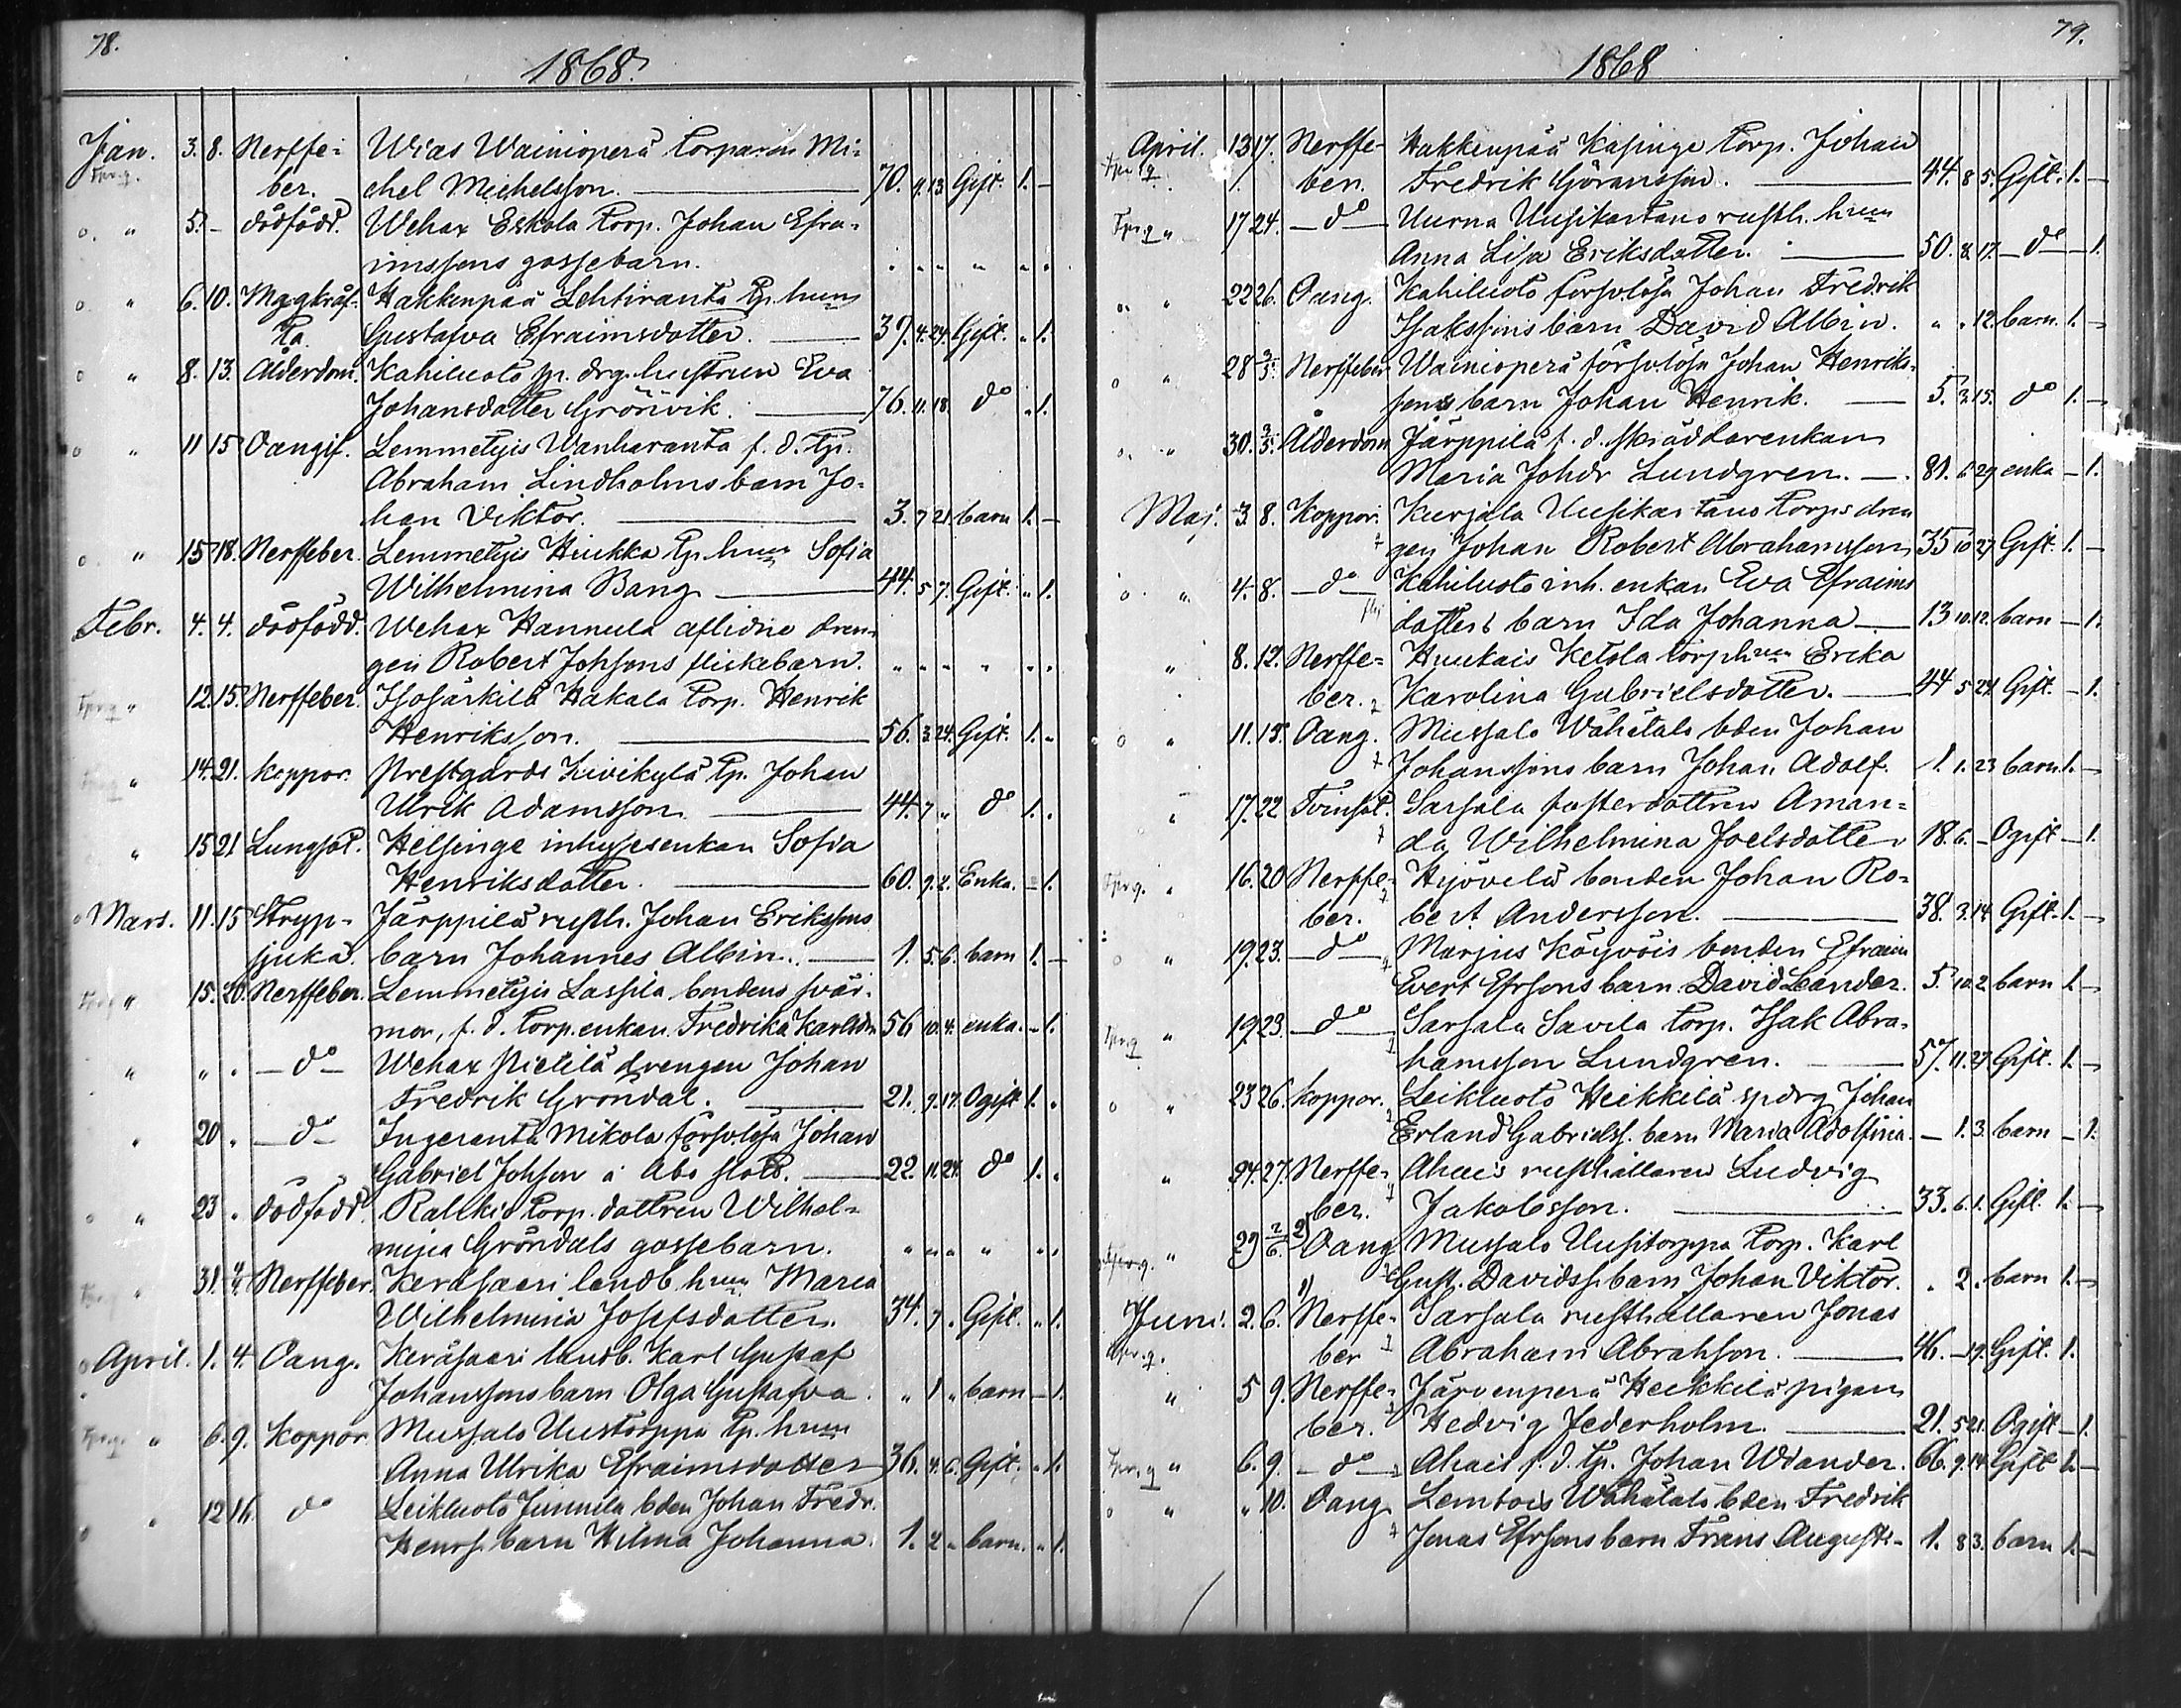 78.
1868.
Jan. 3. 8. Nerffe- Wias Wainioperä Torparen Mi-
ber. chel Michelsson. 70. 9. 13 Gift. 1. -
" 5. - dödfödd. Wehax Eskola Torp. Johan Efra-
imssons gossebarn. " " " " " "
" 6. 10. Hakkenpää Lehtiranta Tp. hun
Gustafva Efraimsdotter. 39. 4. 24. Gift. " 1.
" 8. 13. Ålderdom. Kahiluoto sp. drg. hustrun Eva
Johansdotter Grönvik. 76. 11. 18. do " 1.
" 11 15 Oangif. Lemmetyis Wanharanta f. d. Tp.
Abraham Lindholms barn Jo-
han Viktor. 3. 7 21 barn 1. -
" 15 18. Nerffeber. Lemmetyis Hiukka Tp. hun Sofia
Wilhelmina Bang 44. 5 7. Gift. " 1.
Febr. 4. 4. dödfödd. Wehax Hannula aflidne dren-
gen Robert Johssons flickebarn. " " " " " "
" 12. 15. Nerffeber. Isosärkilä Hakala Torp. Henrik
Henriksson. 56. 3 24. Gift. 1. "
" 14. 21. koppor. Prestgårds Kivikylä Tp. Johan
Ulrik Adamsson 44. 7 " do 1. "
" 15 21 Lungsot. Helsinge inhysesenkan Sofia
Henriksdotter. 60. 9. 2. Enka. - 1.
Mars. 11. 15 Stryp- Järppilä rusth. Johan Erikssons
sjuka. barn Johannes Albin. 1. 5. 6. barn 1. -
" 15. 20. Nerffeber. Lemmetyis Lassila bondens svär-
mor, f. d. Torp. enkan Fredrika Karlsdr 56 10. 4. enka. - 1.
" " " do Wehax Pietilä drengen Johan
Fredrik Gröndal. 21. 9. 17. Ogift 1. "
" 20 " do Ingeranta Mikola försvlösa Johan
Gabriel Johsson å Åbo slott. 22. 11. 24. do 1. "
" 23 " dödfödd. Rallkis Torp. dottren Wilhel-
mina Gröndals gossebarn. " " " " " "
" 31. Nerffeber. Keräsaari landb. hun Maria
Wilhelmina Josefsdotter. 34. 7 " Gift. " 1.
April. 1. 4. Oang. Keräsaari landb. Karl Gustaf
Johanssons barn Olga Gustafva. " 1 " barn - 1.
" 6. 9. Koppor Mussalo Uustorppa Tp. hun
Anna Ulrika Efraimsdotter 36. 4. 6. Gift. " 1.
" 12 16. do Leikluoto Junnila bden Johan Fredr.
Henrs. barn Hilma Johanna. 1. 2 " barn. " 1.
79.
1868
April. 13 17. Nerffe- Hakkenpää Kasinge Torp. Johan
ber. Fredrik Göransson. 44. 8 5. Gift. 1. -
" 17 24. do Uurna Uusikartano rusth. hun
Anna Lisa Eriksdotter. 50. 8. 17. do - 1.
" 22 26. Oang. Kahiluoto försvlösa Johan Fredrik
Isakssons barn David Albin. " " 12. barn. 1. -
" 28 3/5. Nerffeber. Wainioperä försvlösa Johan Henriks-
sons barn Johan Henrik. 5. 3 15. do 1. -
" 30. 3/5. Ålderdom Järppilä f. d. skräddarenkan
Maria Johdr Lundgren. 81. 6 29 enka - 1.
Maj. 3. 8. Koppor. Kurjala Uusikartano Torps dren
gen Johan Robert Abrahamsson 35 10 27 Gift. 1. -
" 4. 8. do Kahiluoto inh. enkan Eva Efraims
dotters barn Ida Johanna 13 10. 12. barn - 1.
" 8. 12. Nerffe- Huukais Ketola Torp hun Erika
ber. Karolina Gabrielsdotter. 44 5 24. Gift. - 1.
" 11. 15. Oang. Mussalo Wähätalo bden Johan
Johanssons barn Johan Adolf. 1. 1. 23 barn 1. -
" 17. 22 Tvinsot. Sarsala fosterdottren Aman-
da Wilhelmina Joelsdotter 18. 6. - Ogift - 1.
" 16. 20 Nerffe- Hjövelä bonden Johan Ro-
ber. bert Andersson. 38. 3. 14. Gift. 1. -
" 19. 23. do Marjus Köyvöis bonden Efraim
Evert Efrsons barn David Leander. 5. 10. 2 barn 1. -
" 19 23. do Sarsala Savila Torp. Isak Abra-
hamsson Lundgren. 57. 11. 27 Gift. 1. -
" 23 26. koppor. Leikluoto Heikkilä spdrg Johan
Erland Gabrielss. barn Maria Adolfina. - 1. 3. barn - 1.
" 24. 27. Nerffe- Ahais rusthållaren Ludvig
ber. Jakobsson. 33. 6. 1. Gift. 1. -
" 29 2/6. Oang Mussalo Uusitorppa Torp. Karl
Gust. Davidss. barn Johan Viktor. " 2. " barn 1. -
Juni. 2. 6. Nerffe- Sarsala rusthållaren Jonas
ber Abraham Abrahsson. 46. - 19. Gift. 1.
" 5 9. Nerffe- Järvenperä Heikkilä pigan
ber. Hedvig Jederholm. 21. 5 21. Ogift - 1.
" 6. 9. do Ahais f. d. Tp. Johan Widander. 66. 9. 14. Gift 1. -
" " 10. Oang Lemtois Wähätalo bden Fredrik
Jonas Efrsons barn Frans August. 1. 8 3. barn 1. -